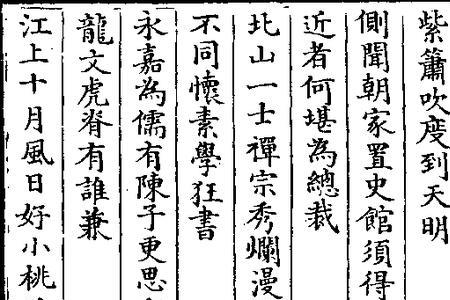 紫簫吹度到天明
側聞朝家置史館須得
近者何堪為總裁
北山一士禪宗秀爛漫
不同懷素學狂書
永嘉為儒有陳子更思
龍文虎脊有誰兼
江上十月風日好小桃